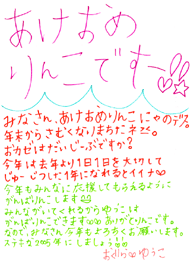 あけおめ
りんこですー
みなさん、あけおめりんこにゃのデス。
年末からさむくなりましたネ
おカゼはだいじょーぶですか?
今年は去年より1日1日を大切にして
じゅーじつした1年になれるとイイナ♡
今年もみんなに応援してもらえるように
がんばりこします
みんながいてくれるからゆうこは
がんばりんこできます♡ ありがとりんこです。
なので、みなさん、今年もよろちくお願いします。
ステキな2005年にしましょうね
おぐら♡ゆうこ